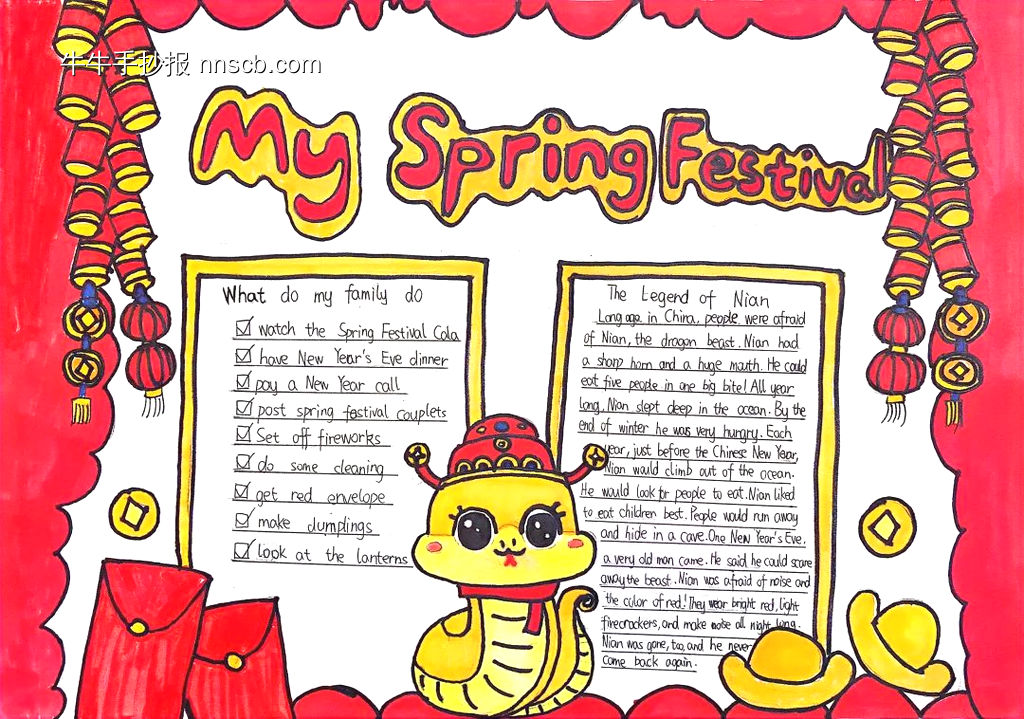 牛牛手抄报 nnscb.com
My Spring Festival
What do my family do
watch the Spring Festival Cola
have New Year's Eve dinner
pay a New Year call
post spring festival couplets
Set off fireworks
do some cleaning
get red envelope
make dumplings
look at the lanterns
The Legend of Nian
Long ago, in China, people were afraid
of Nian, the dragon beast. Nian had
a sharp horn and a huge mouth. He could
eat five people in one big bite! All year
long, Nian slept deep in the ocean. By the
end of winter he was very hungry. Each
year, just before the Chinese New Year,
Nian would climb out of the ocean.
He would look for people to eat. Nian liked
to eat children best. People would run away
and hide in a cave. One New Year's Eve,
a very old man came. He said he could scare
away the beast. Nian was afraid of noise and
the color of red! They wear bright red, light
firecrackers, and make noise all night long.
Nian was gone, too, and he never
come back again.